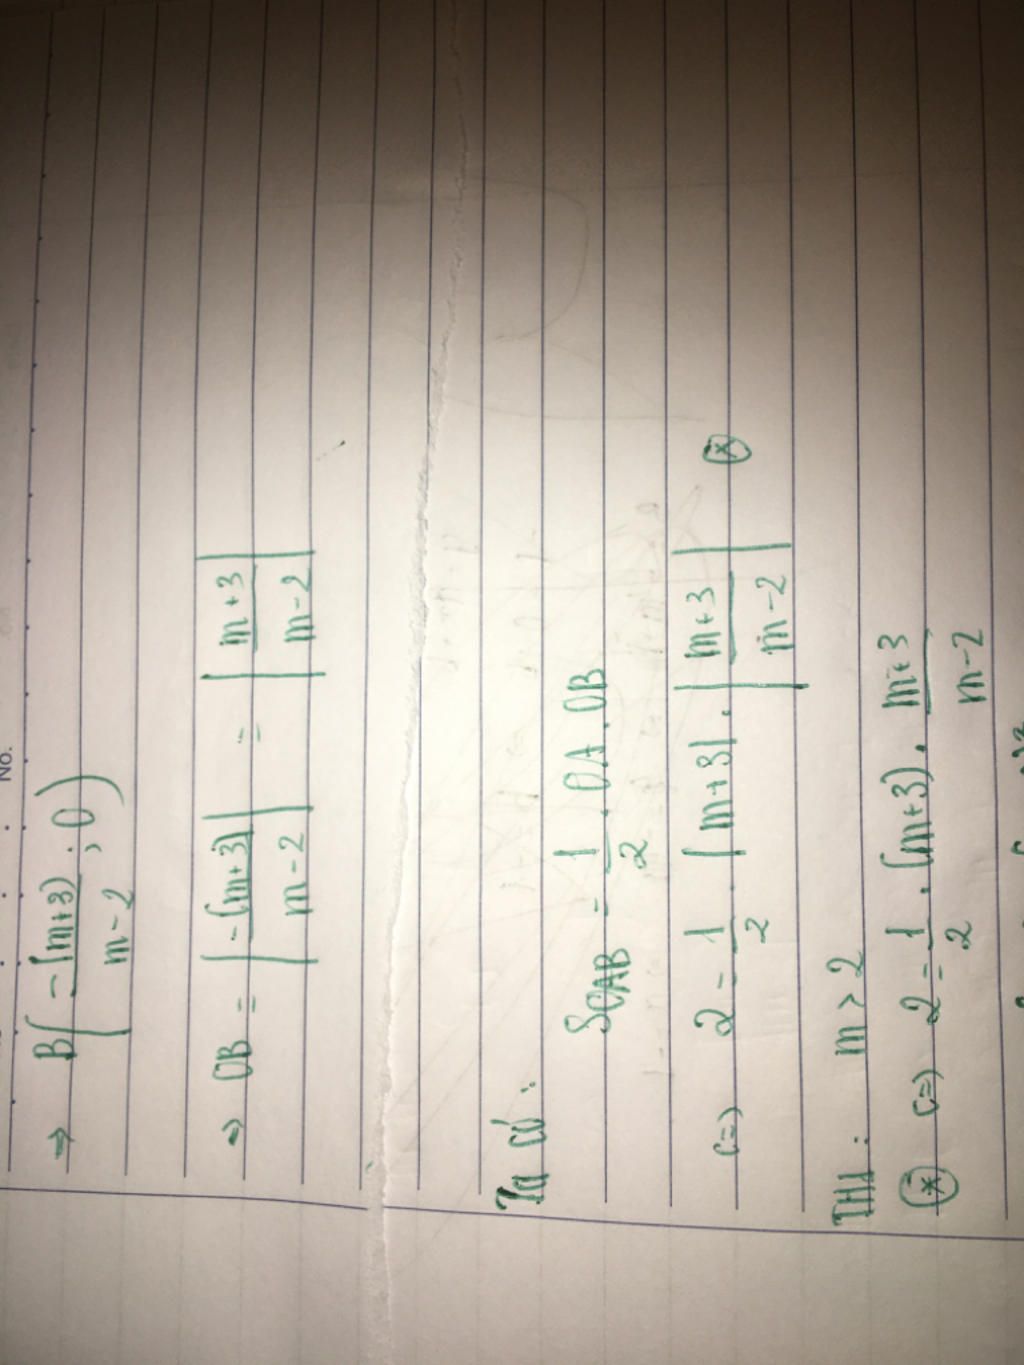 No.
⇒ B(-(m+3)/m-2 ; 0)
⇒ OB = |-(m+3)/m-2| = |m+3/m-2|
Ta có:
SOAB = 1/2 . OA . OB
<=> 2 = 1/2 . |m+3| . |m+3/m-2| (*)
TH1: m > 2
(*) <=> 2 = 1/2 . (m+3) . m+3/m-2